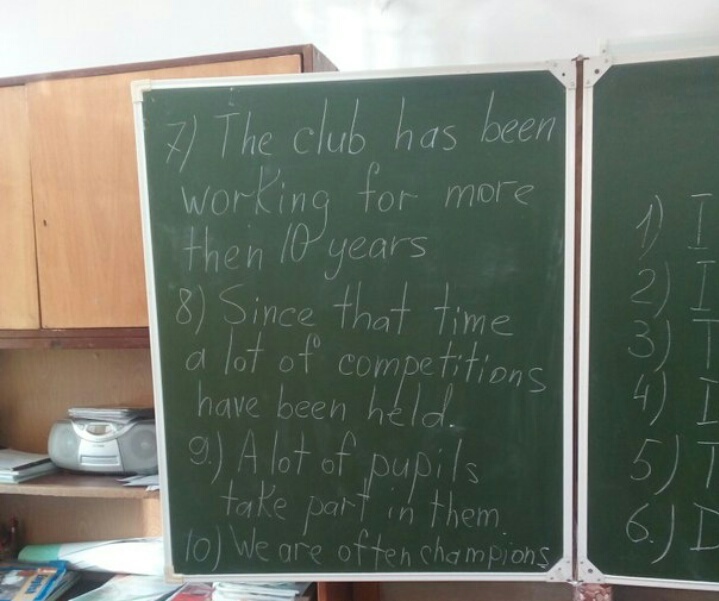 7) The club has been
working for more
then 10 years
8) Since that time
a lot of competitions
have been held.
9.) A lot of pupils
take part in them
10) We are often champions
1) I
2) I
3) T
4) D
5) T
6.) D